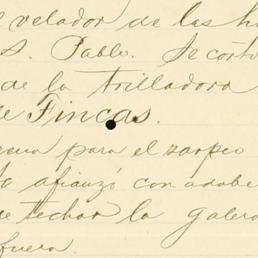 velador de las h
S. Pablo. Se cortó
de la trilladora
de Fincas.
para el zarpeo
afianzó con adobe
de techar la galera
fuera.